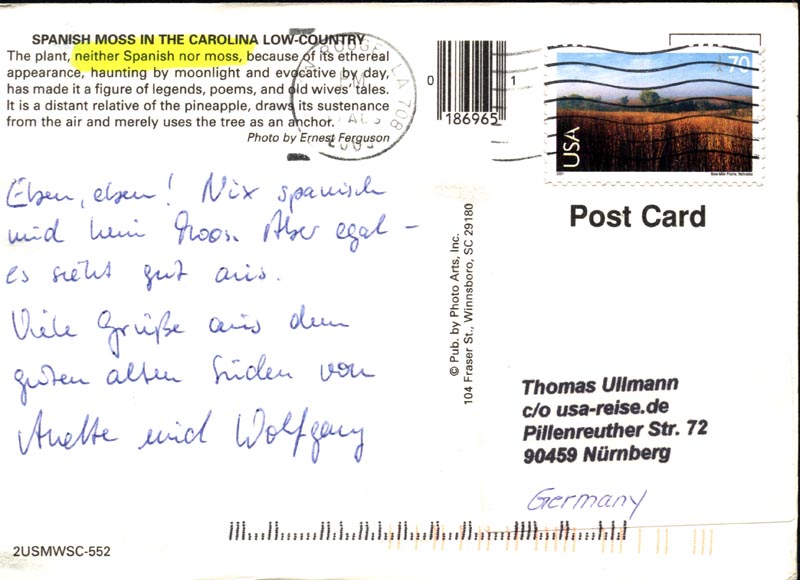 SPANISH MOSS IN THE CAROLINA LOW-COUNTRY
The plant, neither Spanish nor moss, because of its ethereal
appearance, haunting by moonlight and evocative by day,
has made it a figure of legends, poems, and old wives' tales.
It is a distant relative of the pineapple, draws its sustenance
from the air and merely uses the tree as an anchor.
Photo by Ernest Ferguson
ROUGE LA 708
PM
0
1
186965
70
USA
2001
Nine-Mile Prairie, Nebraska
Post Card
Eben, eben! Nix spanisch
und kein Moos. Aber egal –
es sieht gut aus.
Viele Grüße aus dem
guten alten Süden von
Anette und Wolfgang
© Pub. by Photo Arts, Inc.
104 Fraser St., Winnsboro, SC 29180
Thomas Ullmann
c/o usa-reise.de
Pillenreuther Str. 72
90459 Nürnberg
Germany
2USMWSC-552